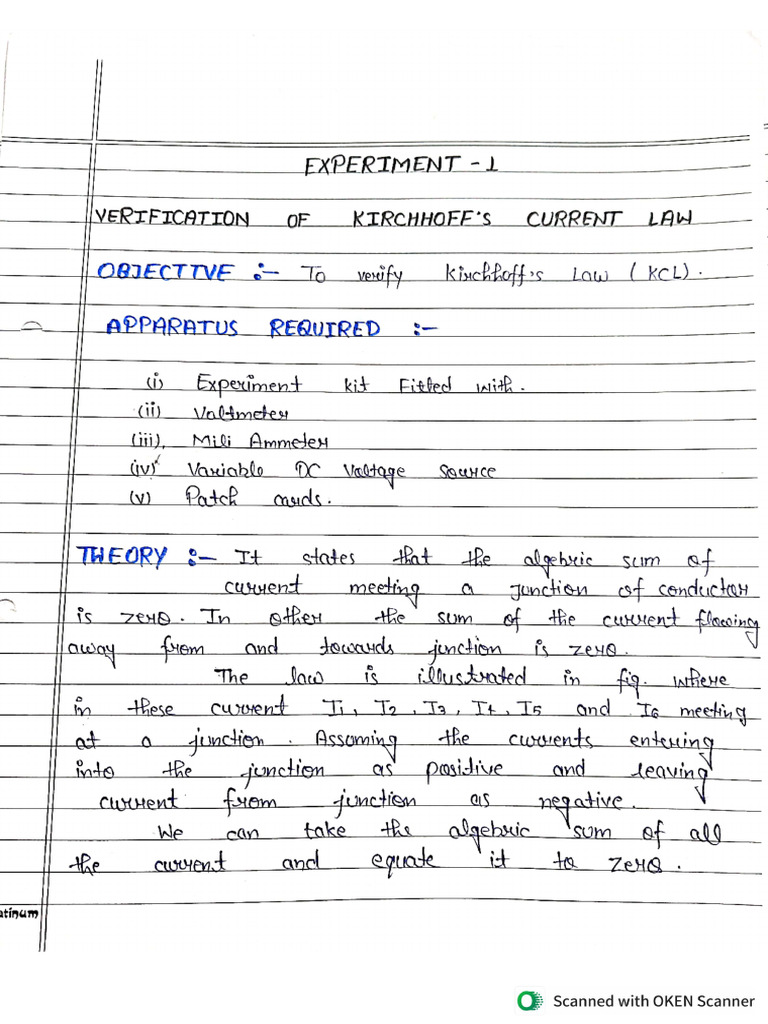 EXPERIMENT - 1
VERIFICATION OF KIRCHHOFF'S CURRENT LAW
OBJECTIVE :- To verify Kirchhoff's Law ( KCL) .
APPARATUS REQUIRED :-
(i) Experiment kit Fitted with.
(ii) Voltmeter
(iii) Mili Ammeter
(iv) Variable DC Voltage source
(v) Patch cards.
THEORY :- It states that the algebric sum of
current meeting a junction of conductor
is zero. In other the sum of the current flowing
away from and towards junction is zero.
The law is illustrated in fig. where
in these current I1, I2, I3, I4, I5 and I6 meeting
at a junction. Assuming the currents entering
into the junction as positive and leaving
current from junction as negative.
We can take the algebric sum of all
the current and equate it to zero.
atinum
Scanned with OKEN Scanner